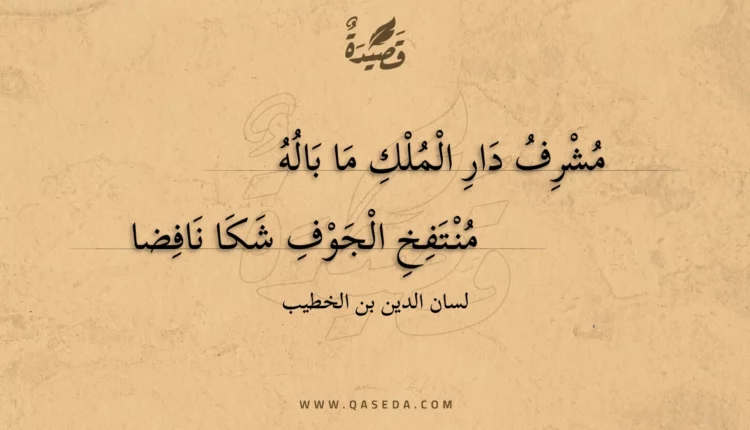 قَصِيدَةٌ
مُشْرِفُ دَارِ الْمُلْكِ مَا بَالُهُ
مُنْتَفِخِ الْجَوْفِ شَكَا نَافِضا
لسان الدين بن الخطيب
WWW.QASEDA.COM